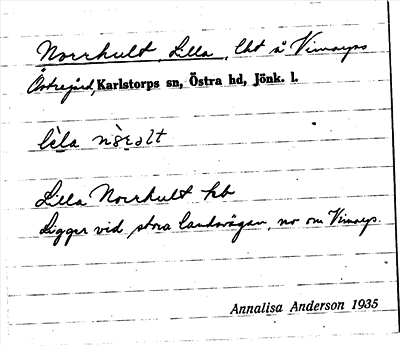 Norrhult, Lilla, lht å Vimarps
Östregård, Karlstorps sn, Östra hd, Jönk. l.
Lilla Norrhult
Ligger vid stora landsvägen, no om Vimarps.
Annalisa Anderson 1935